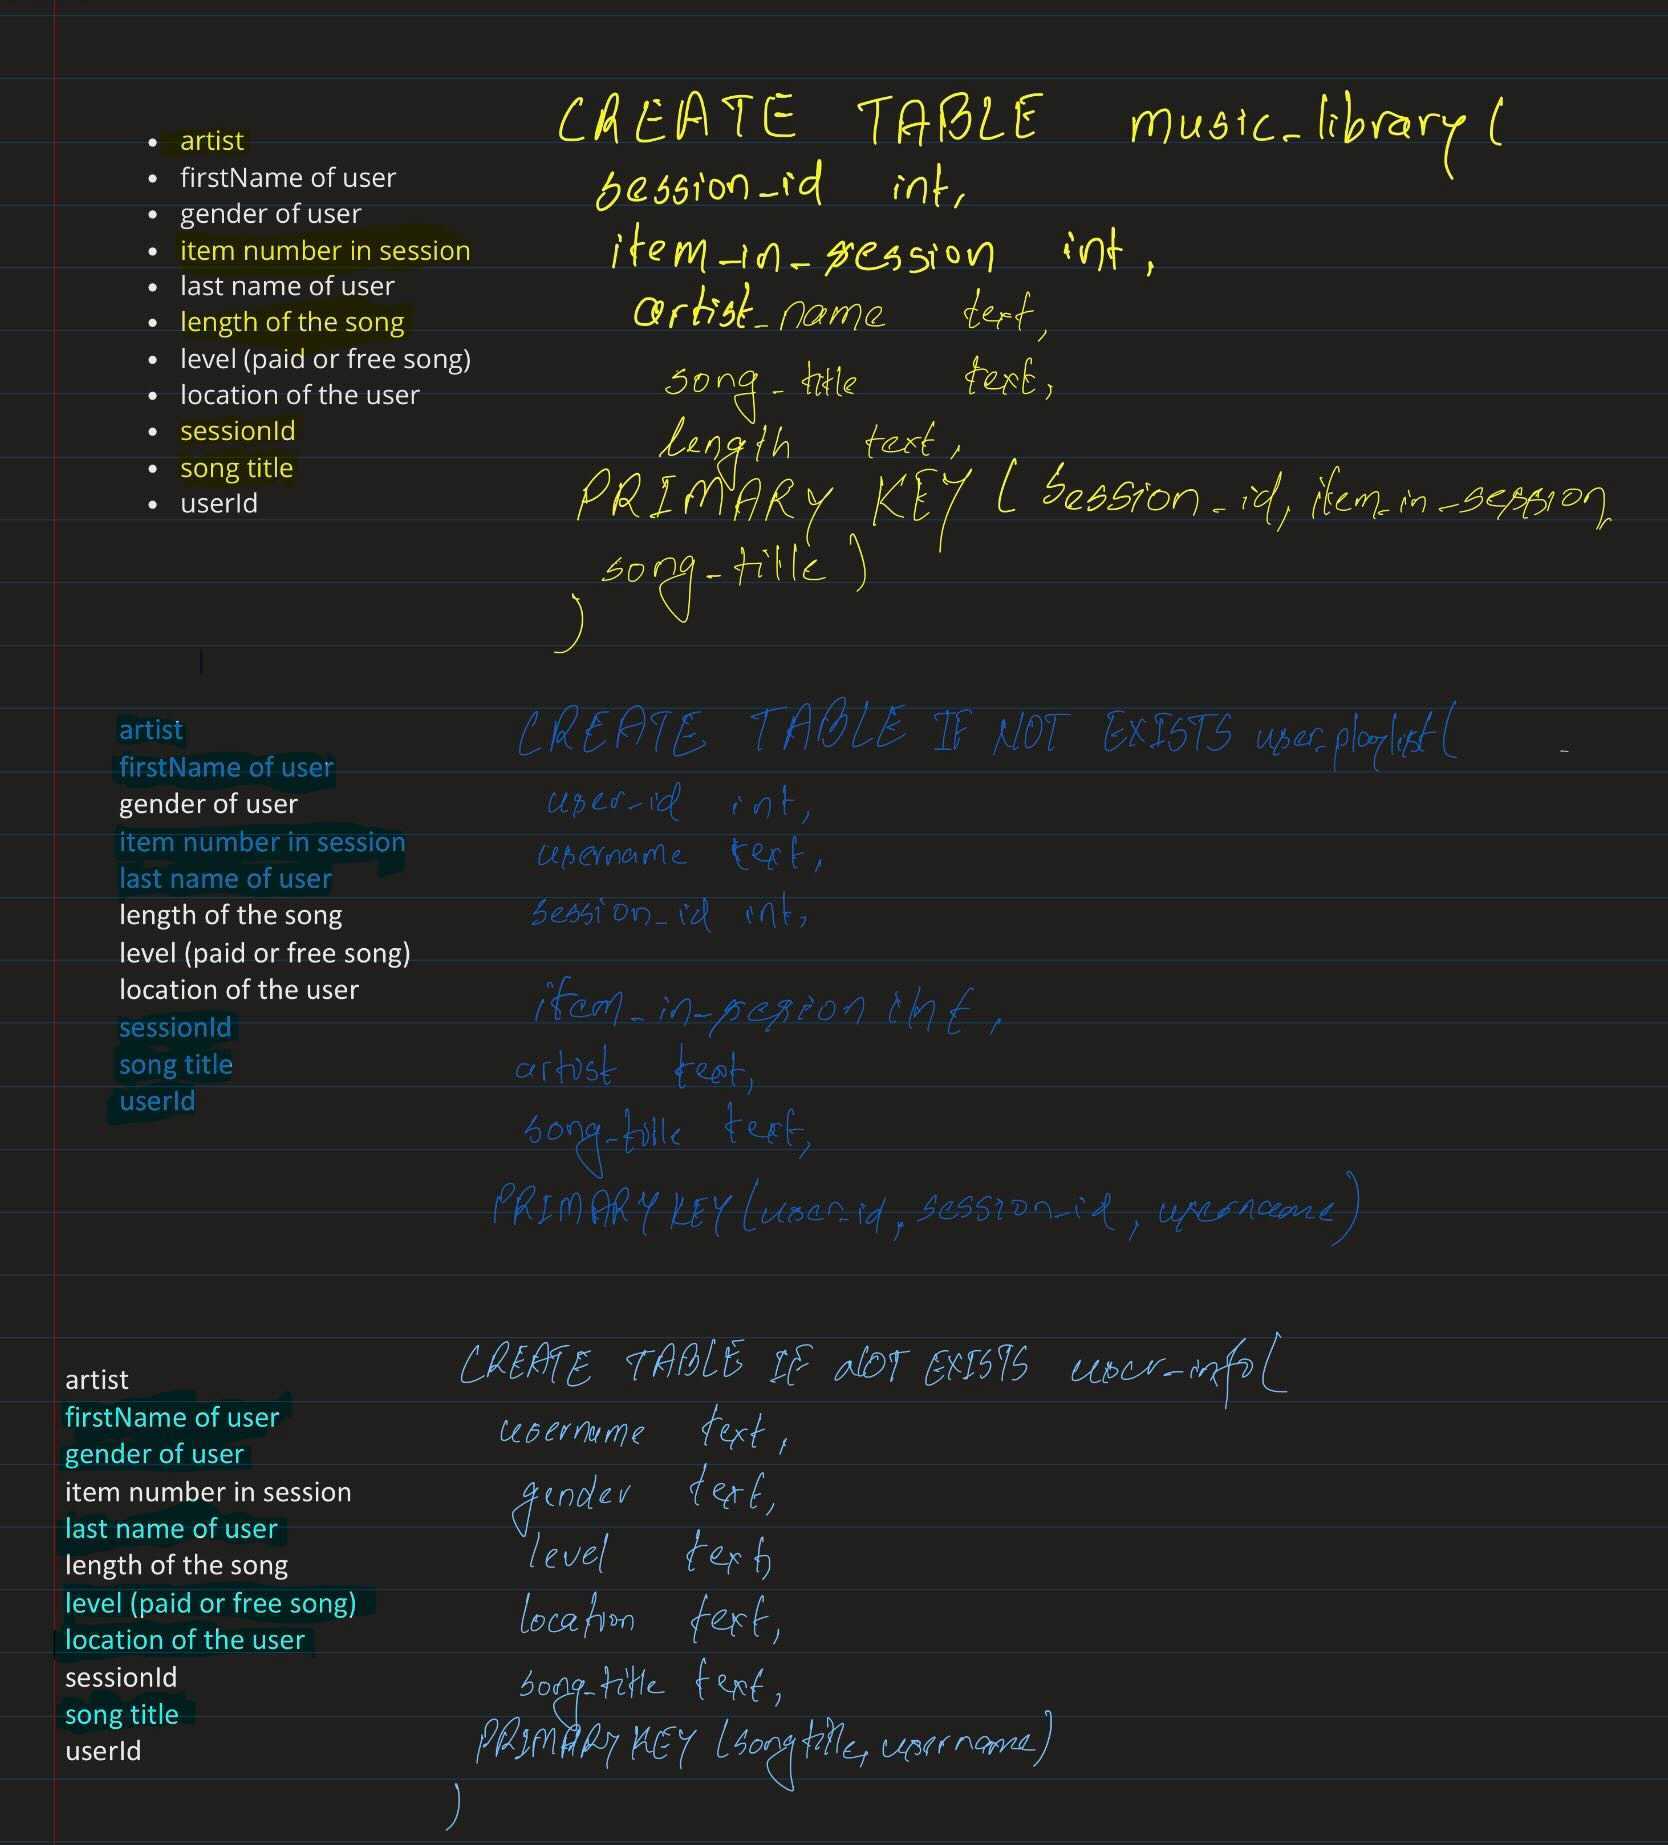 • artist
• firstName of user
• gender of user
• item number in session
• last name of user
• length of the song
• level (paid or free song)
• location of the user
• sessionId
• song title
• userId
CREATE TABLE music_library(
session_id int,
item_in_session int,
artist_name text,
song_title text,
length text,
PRIMARY KEY (session_id, item_in_session,
song_title)
)
artist
firstName of user
gender of user
item number in session
last name of user
length of the song
level (paid or free song)
location of the user
sessionId
song title
userId
CREATE TABLE IF NOT EXISTS user_playlist(
user_id int,
username text,
session_id int,
item_in_session int,
artist text,
song_title text,
PRIMARY KEY (user_id, session_id, username)
artist
firstName of user
gender of user
item number in session
last name of user
length of the song
level (paid or free song)
location of the user
sessionId
song title
userId
CREATE TABLE IF NOT EXISTS user_info(
username text,
gender text,
level text,
location text,
song_title text,
PRIMARY KEY (songtitle, username)
)